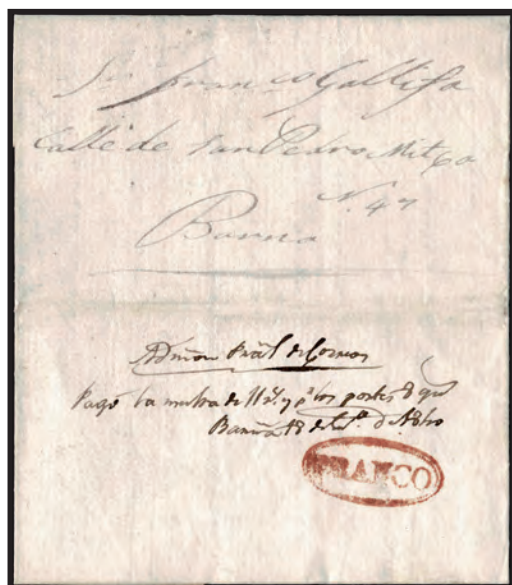 Sr. Franco Gallifa
Calle de San Pedro Mitja
N. 47
Barna
Admon Pral de Correos
Pagó la multa de y pr. los portes
Barna 18 de
FRANCO